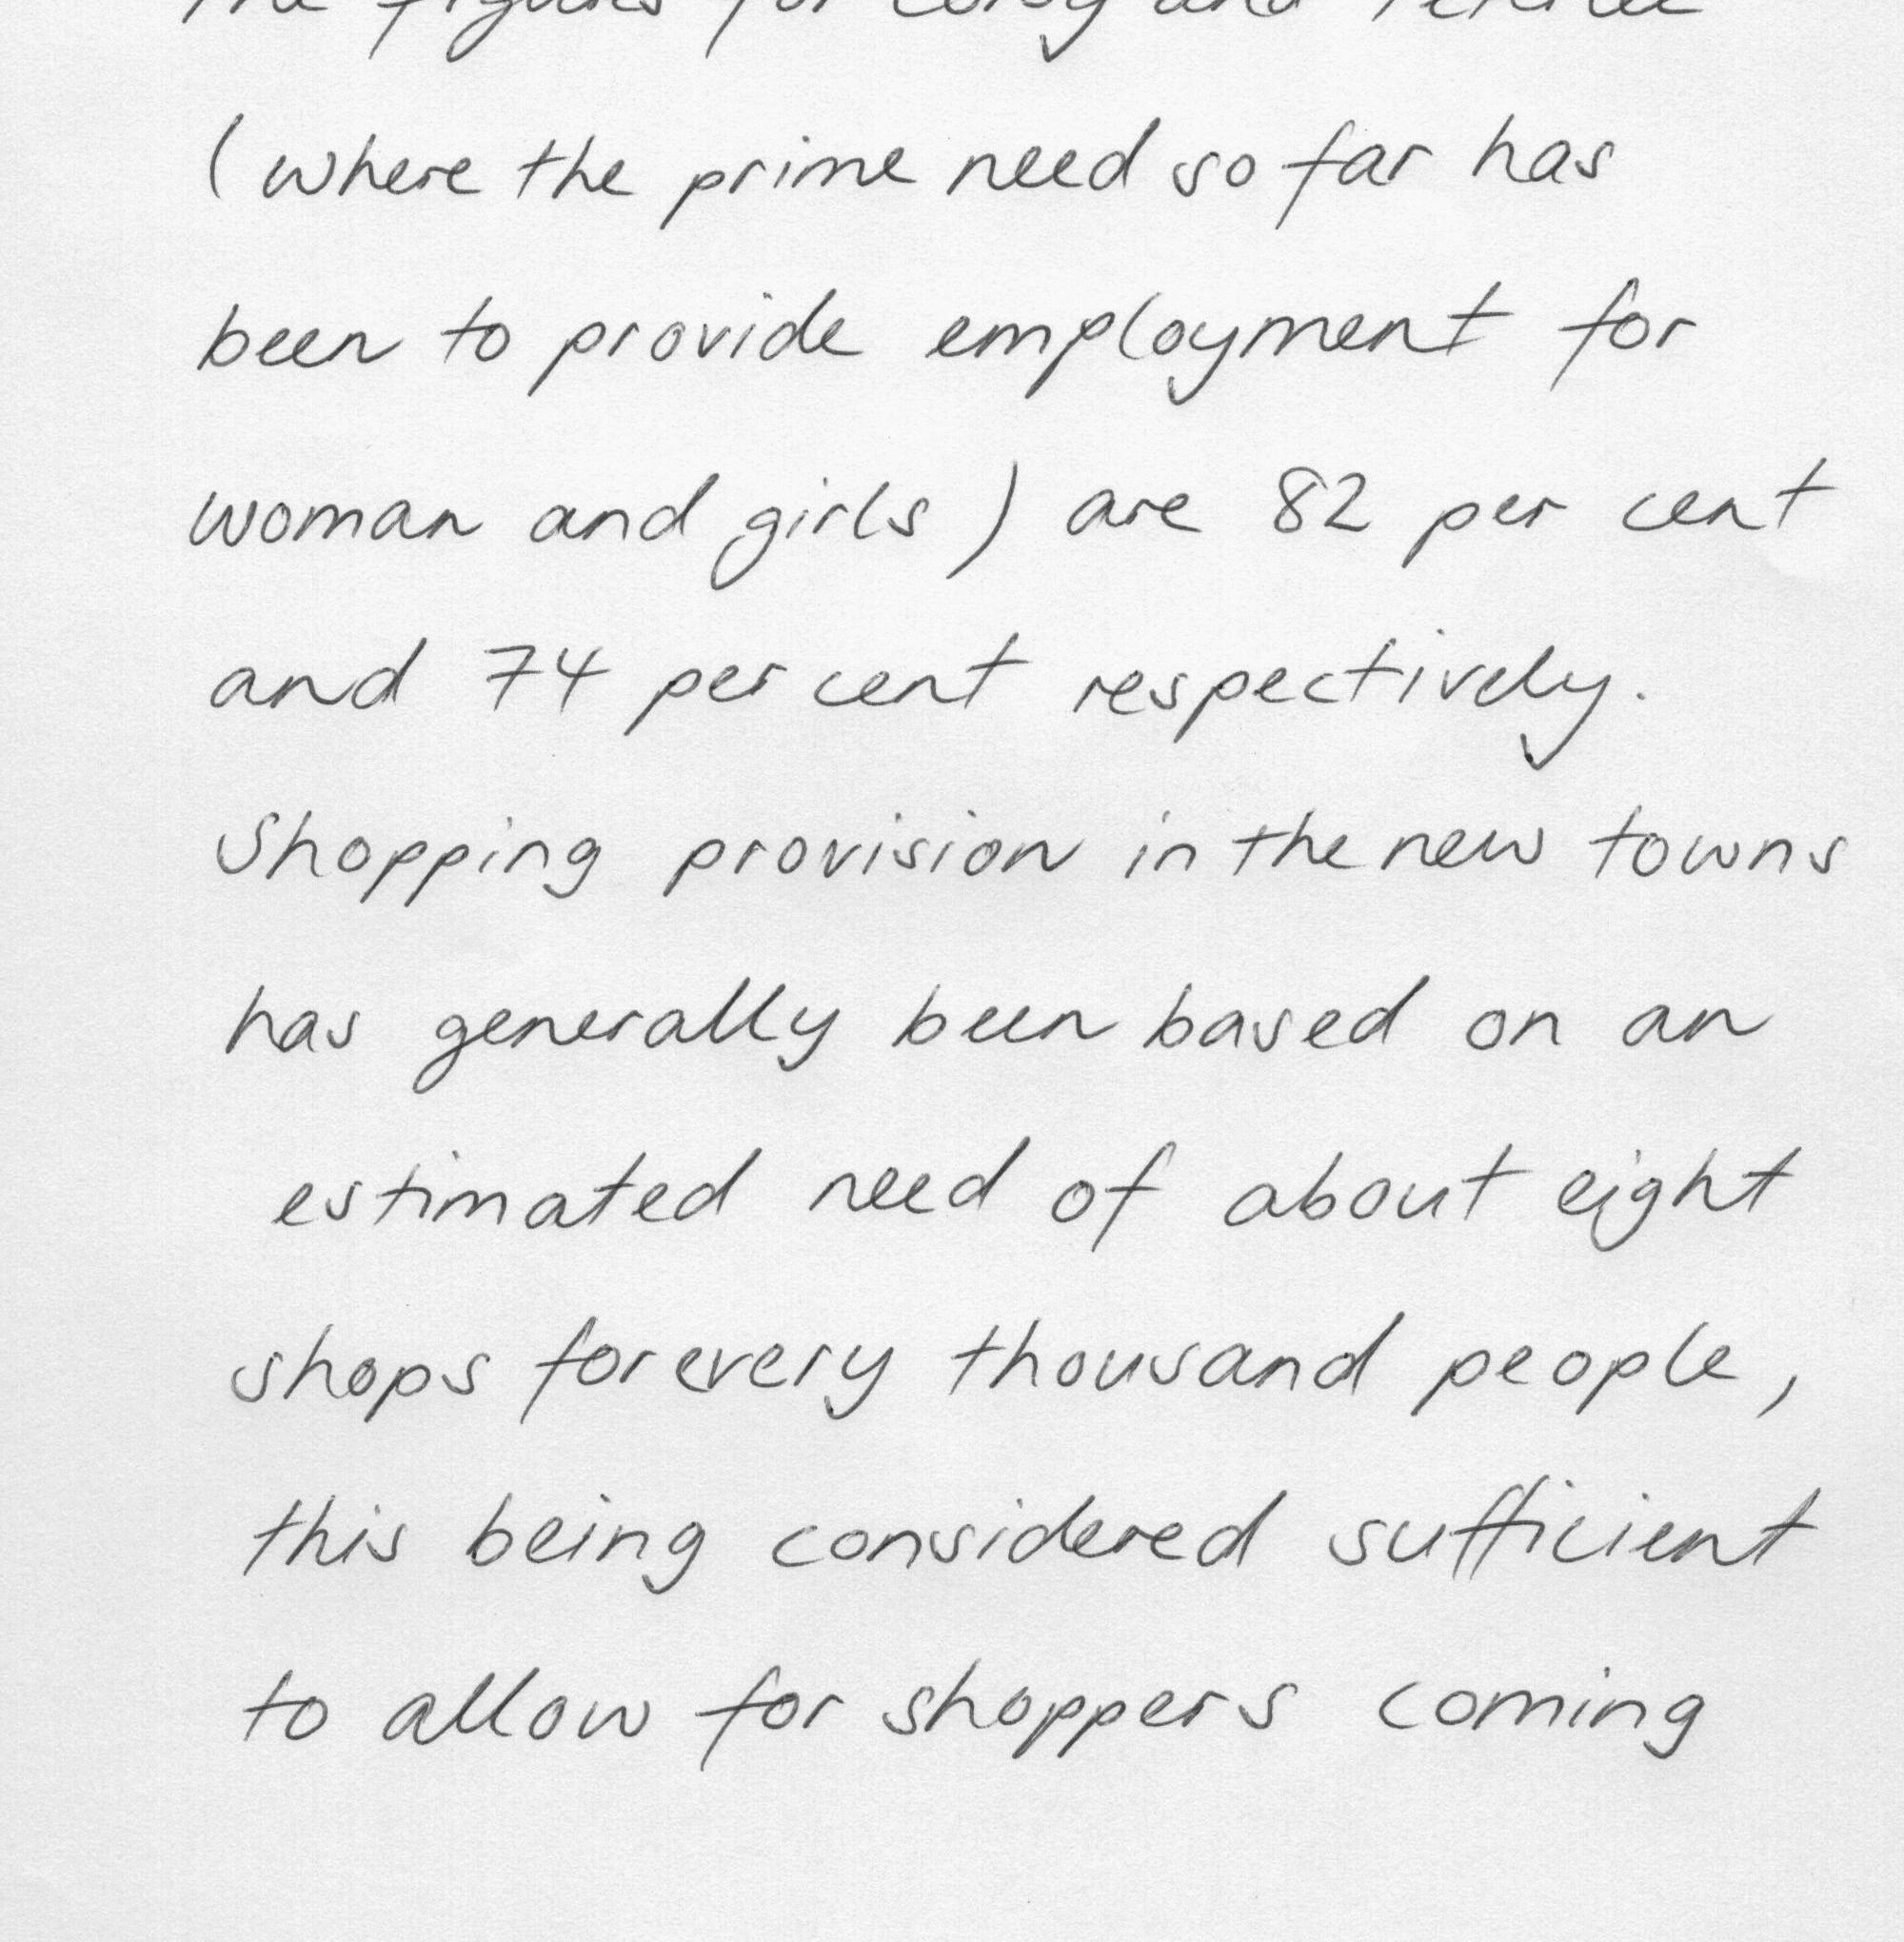 the figures for Corby and Peterlee
(where the prime need so far has
been to provide employment for
woman and girls) are 82 per cent
and 74 per cent respectively.
Shopping provision in the new towns
has generally been based on an
estimated need of about eight
shops for every thousand people,
this being considered sufficient
to allow for shoppers coming